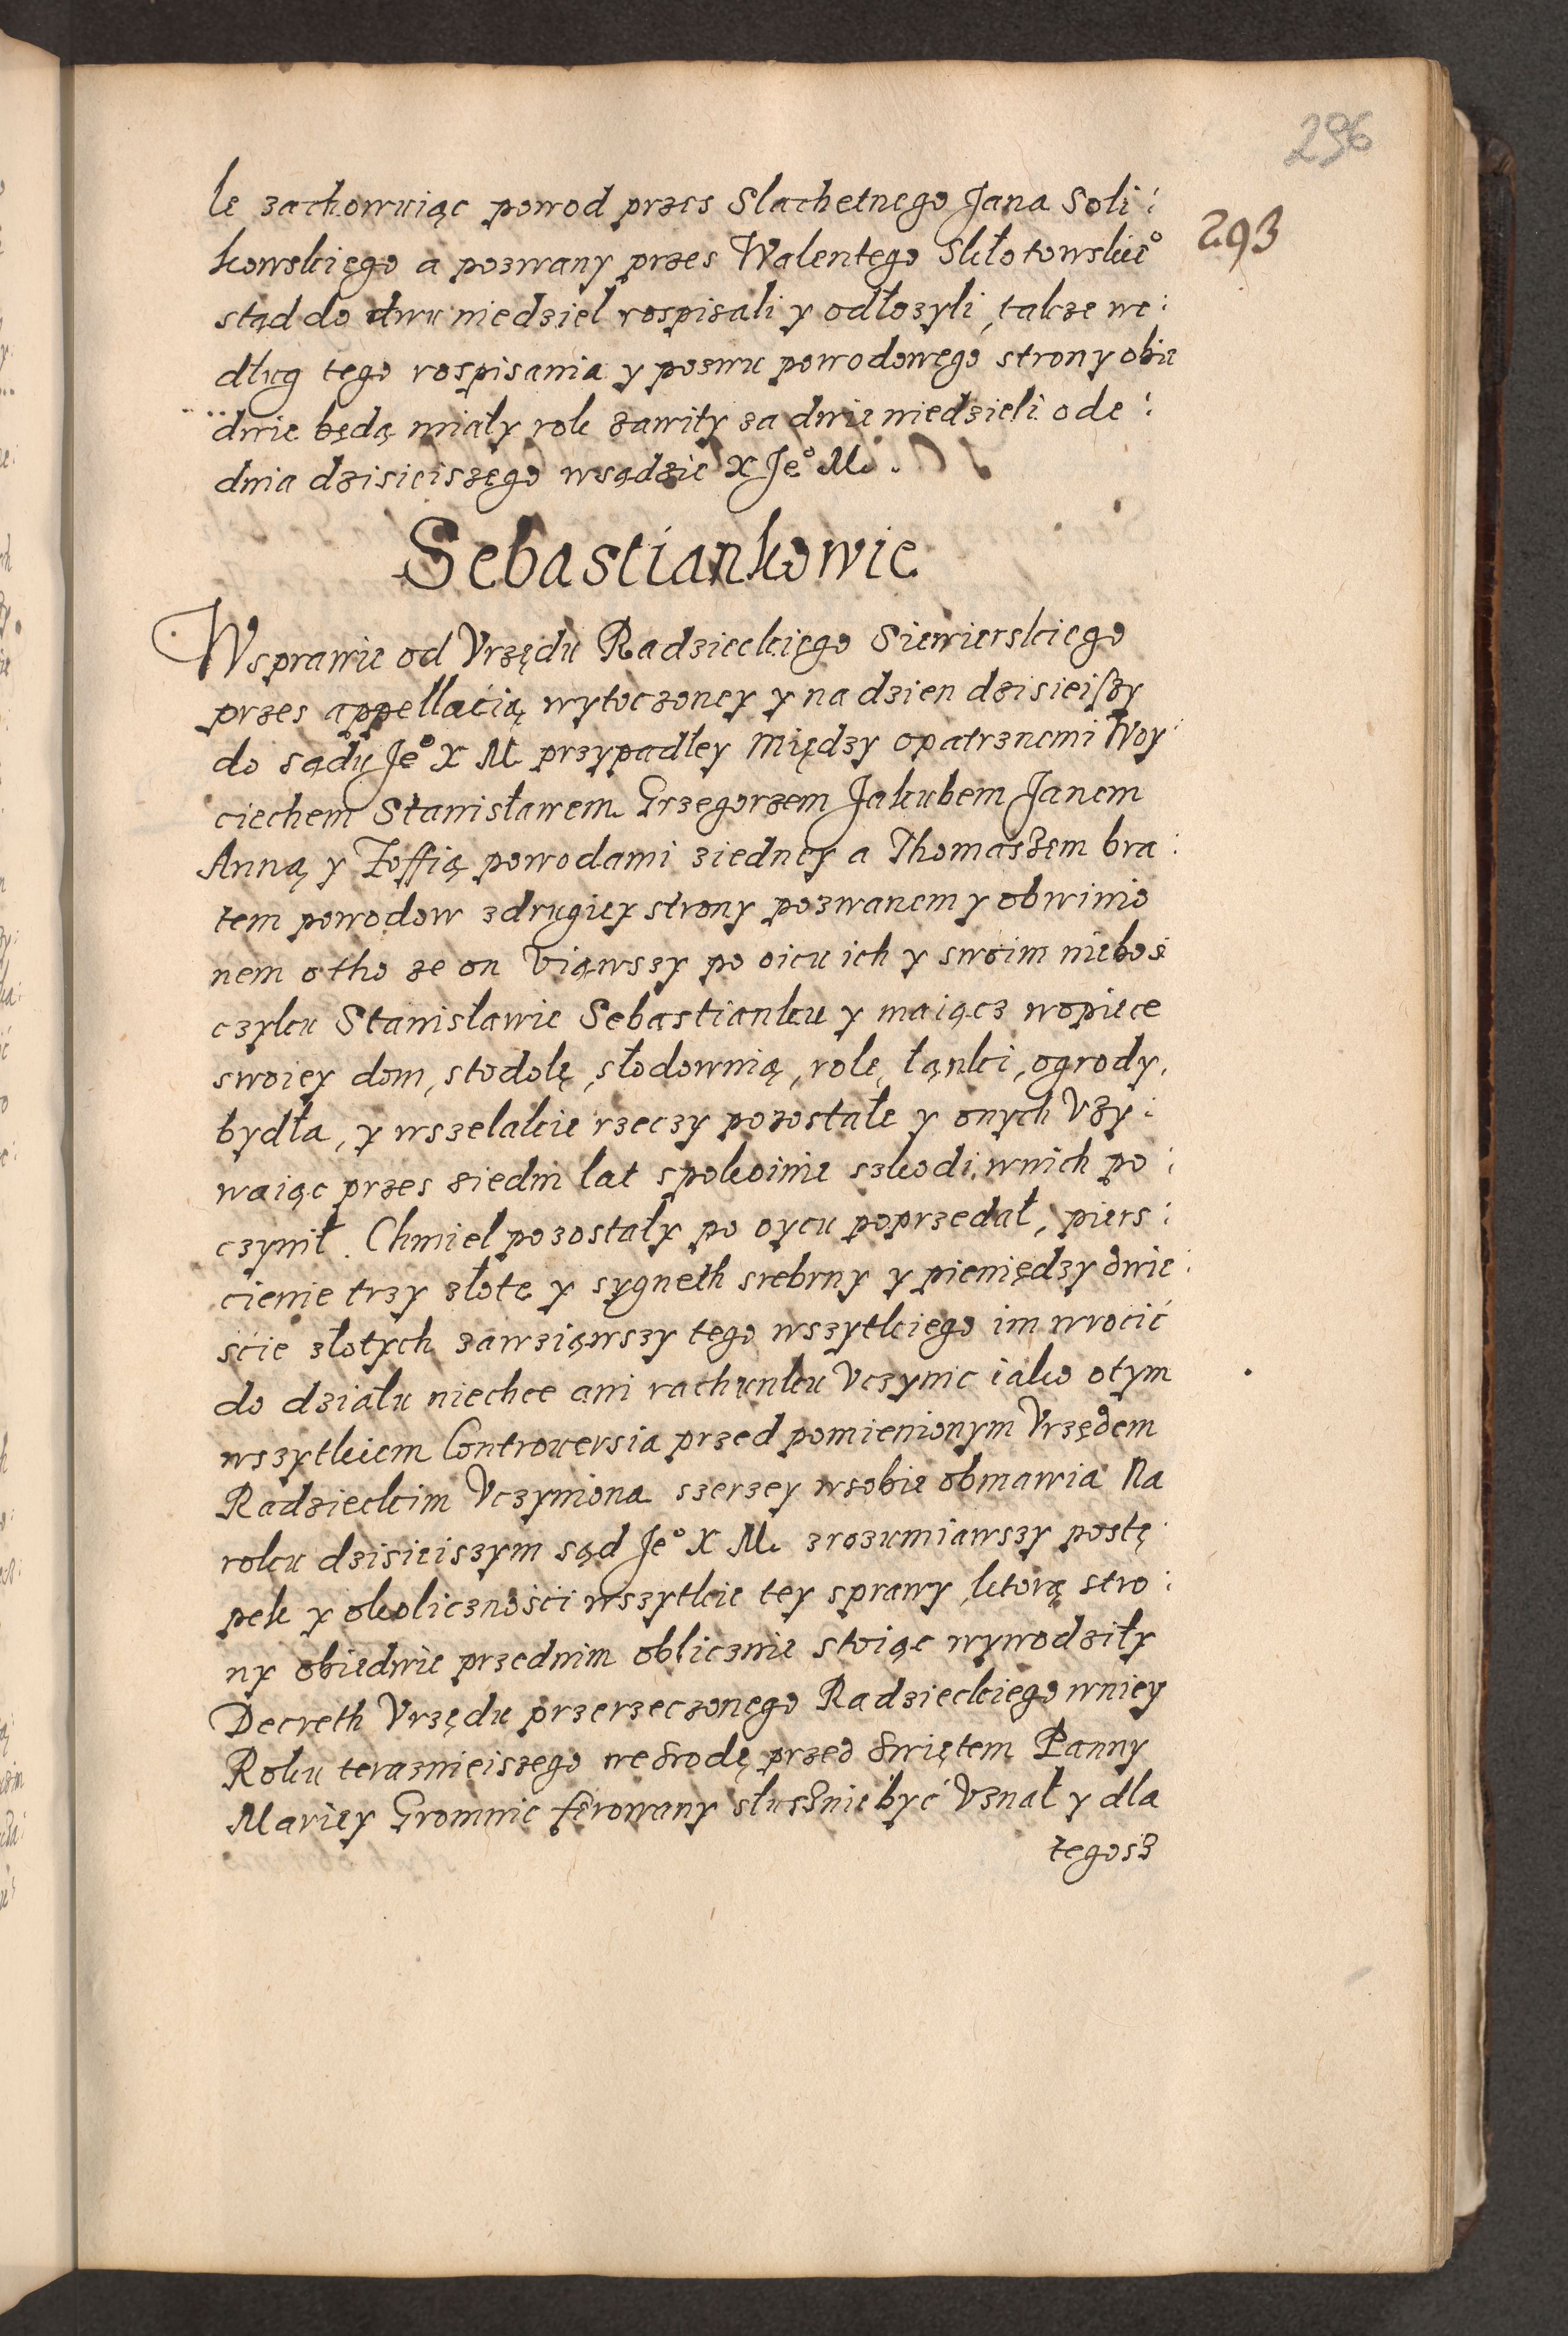 296
293
le zachowuiąc powod przes Slachetnego Jana Soli:
kowskięgo a pozwany przes Walentego Skłotowskie°
stąd do dwu niedziel rospisali y odłozyli, takze we:
dług tego rospisania y pozwu powodowęgo strony obie
dwie będą miały rok zawity za dwie niedzieli ode:
dnia dzisieiszęgo wsądzie X Je° M.
Sebastiankowie
Wsprawie od Vrzędu Radzieckięgo Siewierskięgo
przes appellacią wytoczoney y na dzien dzisieiszy
do sądu Je° X M. przypadłey Między opatrznemi Woy
ciechem Stanisławem Grzegorzem Jakubem Janem
Anną y Zoffią powodami ziedney a Thomaszem bra:
tem powodow zdrugiey strony pozwanem y obwinio
nem otho ze on Viąwszy po oicu ich y swoim niebos
czyku Stanisławie Sebastianku y maiącz wopiece
swoiey dom, stodolę, słodownią, rolę, łąnki, ogrody,
bydła, y wszelakie rzeczy pozostałe y onych Vzy:
waiąc przes siedm lat spokoinie szkodi wnich po:
czynił. Chmiel pozostały po oycu poprzedał, piers:
cienie trzy złote y sygneth srebrny y pieniędzy dwie:
ście złotych zawziąwszy tego wszytkięgo im wrocić
do działu niechce ani rachunku Vczynic iako otym
wszytkiem Controuersia przed pomienionym Vrzędem
Radzieckim Vczyniona szerzey wsobie obmawia Na
roku dzisieiszym sąd Je° X M. zrozumiawszy postę
pek y okoliczności wszytkie tey sprawy, ktorą stro:
ny obiedwie przednim oblicznie stoiąc wywodziły
Decreth Vrzędu przerzeczonęgo Radzieckięgo wniey
Roku teraznieiszego weSrodę przed Swiętem Panny
Mariey Gromnic ferowany słusznie być Vznał y dla
tegosz